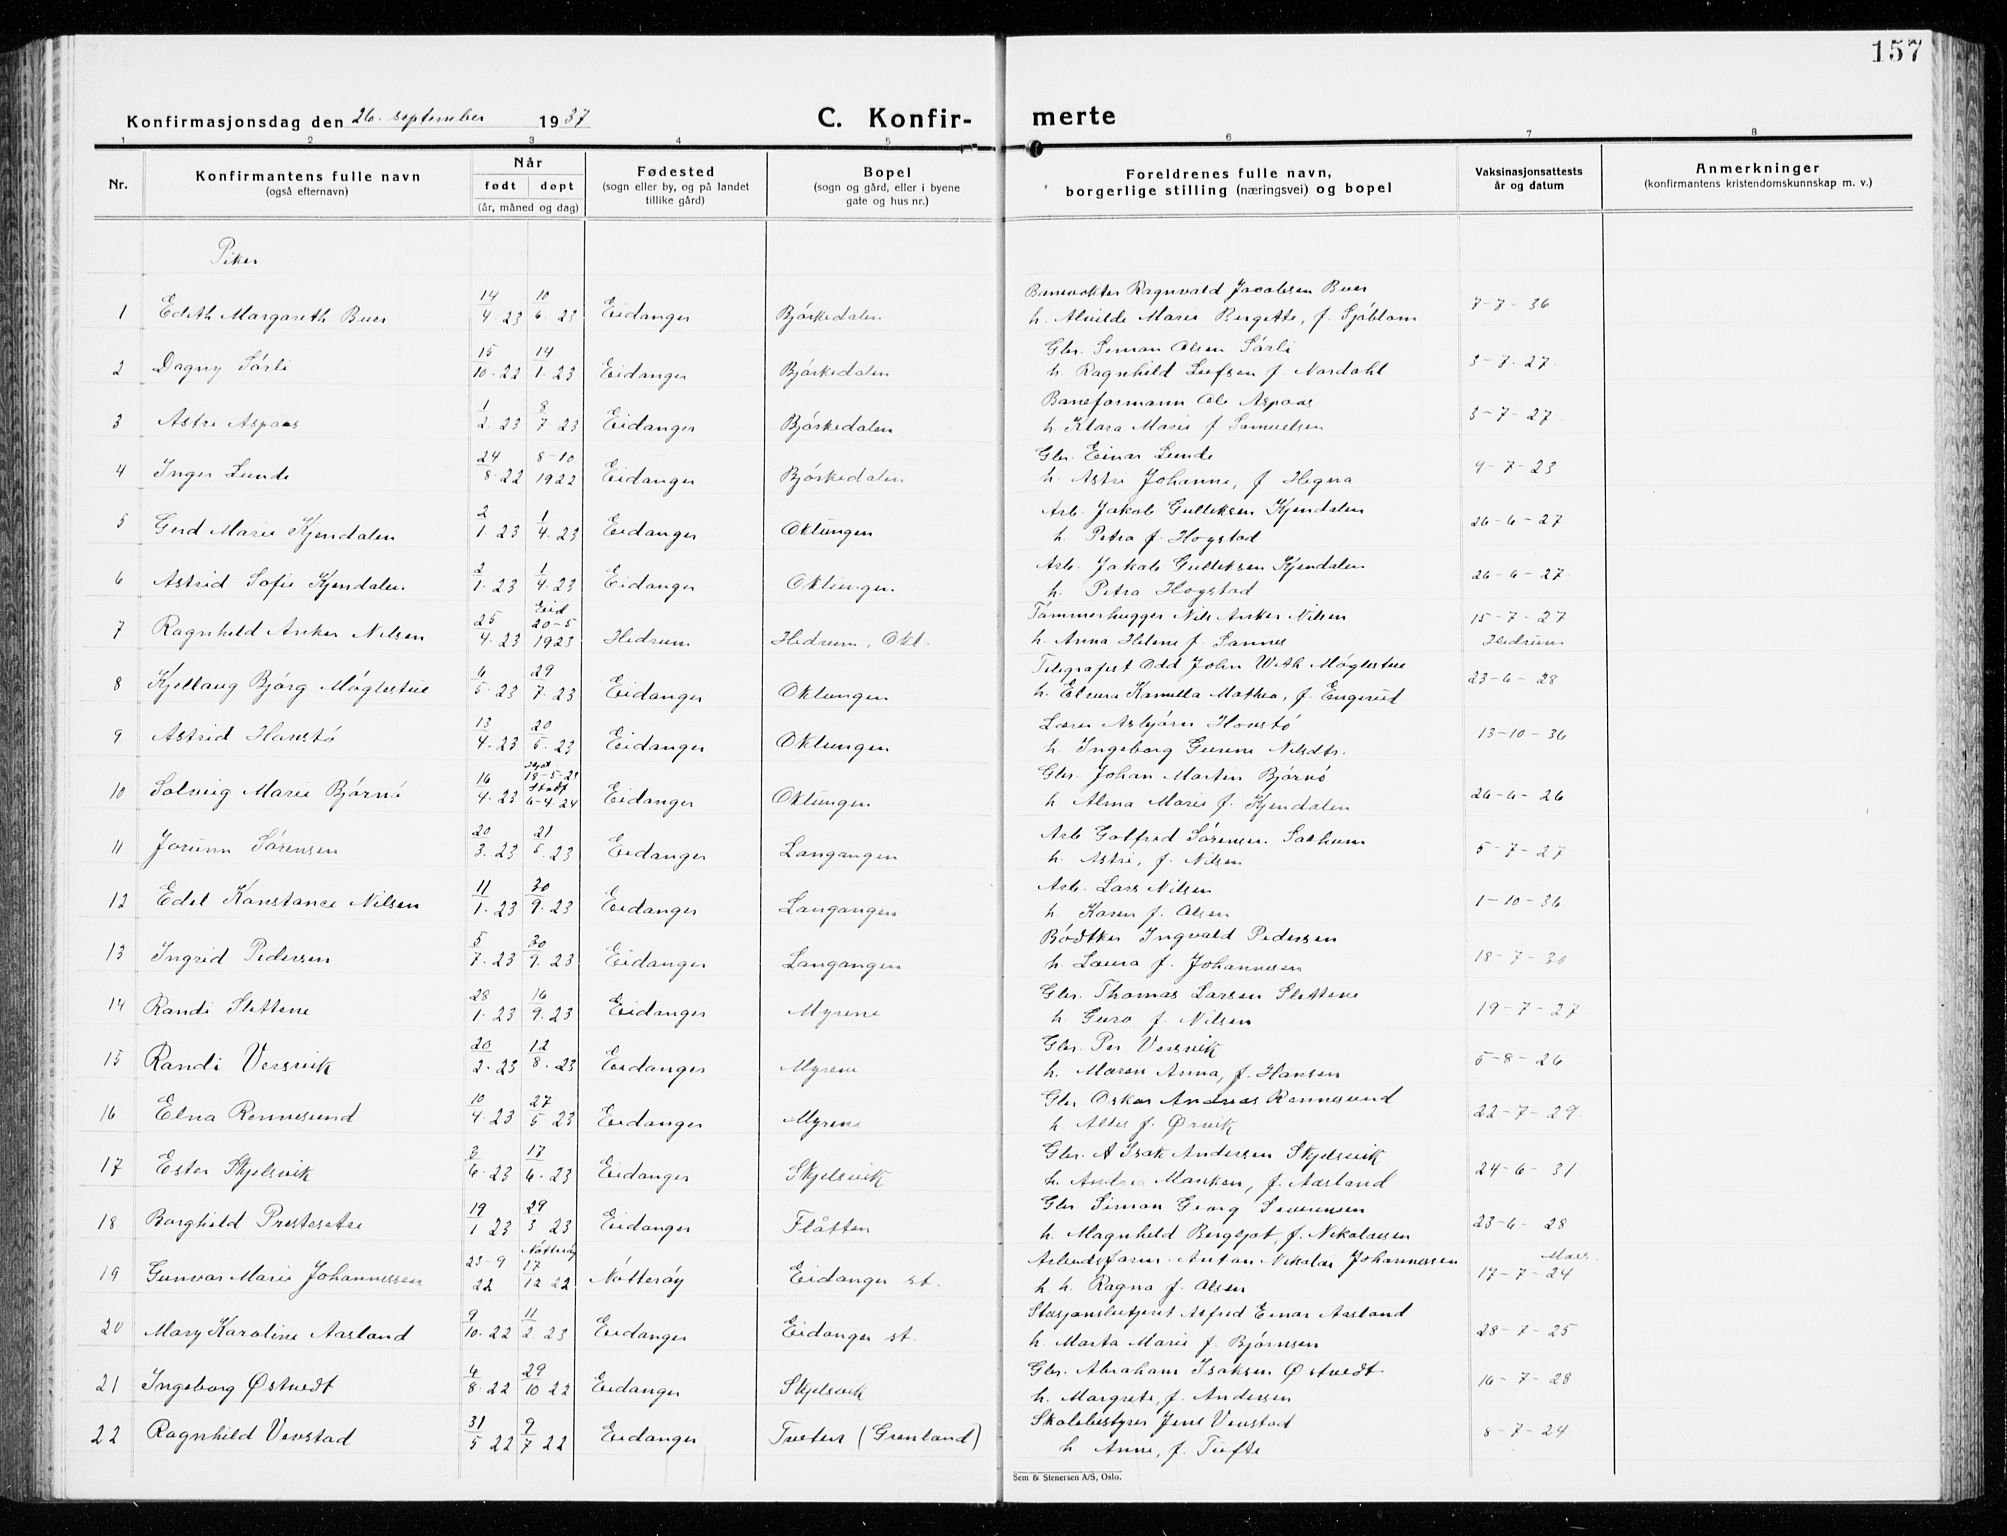 157
Konfirmasjonsdag den 26. september 1937 C. Konfir- merte
1 2 3 4 5 6 7 8
Nr. Konfirmantens fulle navn (også efternavn) Når født døpt (år, måned og dag) Fødested (sogn eller by, og på landet tillike gård) Bopel (sogn og gård, eller i byene gate og hus nr.) Foreldrenes fulle navn, borgerlige stilling (næringsvei) og bopel Vaksinasjonsattests år og datum Anmerkninger (konfirmantens kristendomskunnskap m. v.)
Piker
1 Edith Margareth Buer 14/4. 23 10/6. 23 Eidanger Bjørkedalen Banevokter Ragnvald Jacobsen Buer 7-7-36
h. Alvilde Marie Bergette, f. Sjøblom
2 Dagny Sørli 15/10. 22 14/1. 23 Eidanger Bjørkedalen Gbr. Simon Olsen Sørli 3-7-27
h. Ragnhild Leifsen f. Nordahl
3 Astri Aspaas 1/2. 23 8/7. 23 Eidanger Bjørkedalen Baneformann Ole Aspaas 3-7-27
h. Klara Marie f Samuelsen
4 Inger Lunde 24/8. 22 8-10 1922 Eidanger Bjørkedalen Gbr. Einar Lunde 9-7-23
h. Astri Johanne, f. Hegna
5 Gerd Marie Kjendalen 2/1. 23 1/4. 23 Eidanger Oklungen Arb. Jakob Gulleksen Kjendalen 26-6-27
h. Petra f. Hogstad
6 Astrid Sofie Kjendalen 2/1. 23 1/4. 23 Eidanger Oklungen Arb. Jakob Gulleksen Kjendalen 26-6-27
h. Petra Hogstad
7 Ragnhild Anker Nilsen 25/4. 23 Eid 20-5 1923 Hedrum Hedrum, Okl. Tømmerhugger Nils Anker Nilsen 15-7-27 Hedrum
h. Anna Helene f. Sannes
8 Kjellaug Bjørg Møglestue 6/5. 23 29/7. 23 Eidanger Oklungen Telegrafist Odd John With Møglestue 23-6-28
h. Kamilla Mathea, f. Engerud
9 Astrid Honstø 13/4. 23 20/5. 23 Eidanger Oklungen Lærer Asbjørn Honstø 13-10-36
h. Ingeborg Gurine Nilsdtr.
10 Solveig Marie Bjørnø 16/4. 23 18-5-23 Stadf 6-4. 24 Eidanger Oklungen Gbr. Johan Martin Bjørnø 26-6-26
h Alma Marie f. Kjendalen
11 Jorunn Sørensen 20/3. 23 21/5. 23 Eidanger Langangen Arb Gotfred Sørensen 5-7-27
h. Astri, f. Nilsen
12 Edel Konstance Nilsen 11/1. 23 30/9. 23 Eidanger Langangen Arb. Lars Nilsen 1-10-36
h. Karen f. Olsen
13 Ingrid Pedersen 5/7. 23 30/9. 23 Eidanger Langangen Bødtker Ingvald Pedersen 18-7-30
h. Laura f. Johannesen
14 Randi Slettene 28/1. 23 16/9. 23 Eidanger Myrene Gbr. Thomas Larsen Slettene 19-7-27
h. Guro f. Nilsen
15 Randi Versvik 20/2. 23 12/8. 23 Eidanger Myrene Gbr. Per Versvik 5-8-26
h. Maren Anna, f. Hansen
16 Elna Rennesund 10/4. 23 27/5 23 Eidanger Myrene Gbr Oskar Andreas Rennesund 22-7-29
h. f. Ørvik
17 Ester Skjelsvik 3/6. 23 17/6. 23 Eidanger Skjelsvik Gbr. A Isak Andersen Skjelsvik 24-6-31
h. Andrea f. Aasland
18 Borghild Prestesetre 19/1 23 29/3 23 Eidanger Flåtten Gbr Simon Georg Severinsen 23-6-28
h. Magnhild Bergljot, f. Nikolaisen
19 Gunvor Marie Johannessen 23-9 22 Nøtterøy 17/12 22 Nøtterøy Eidanger st. Arbeidsform. Anton Nikolai Johannessen 17-7-24
h h. Ragna f. Olsen
20 Mary Karoline Aasland 9/10. 22 11/2. 23 Eidanger Eidanger st. Stasjonsbetjent Alfred Einar Aasland 28-7-25
h. Marta Marie f. Bjørnsen
21 Ingeborg Østvedt 4/8. 22 29/10 22 Eidanger Skjelsvik Gbr. Abraham Isaksen Østvedt 16-7-28
h. Margrete, f. Andersen
22 Ragnhild Venstad 31/5 22 9/7 22 Eidanger Tveten (Grenland) Skolebestyrer Jens Venstad 8-7-24
h Anne, f. Tufte
Sem & Stenersen A/S, Oslo.